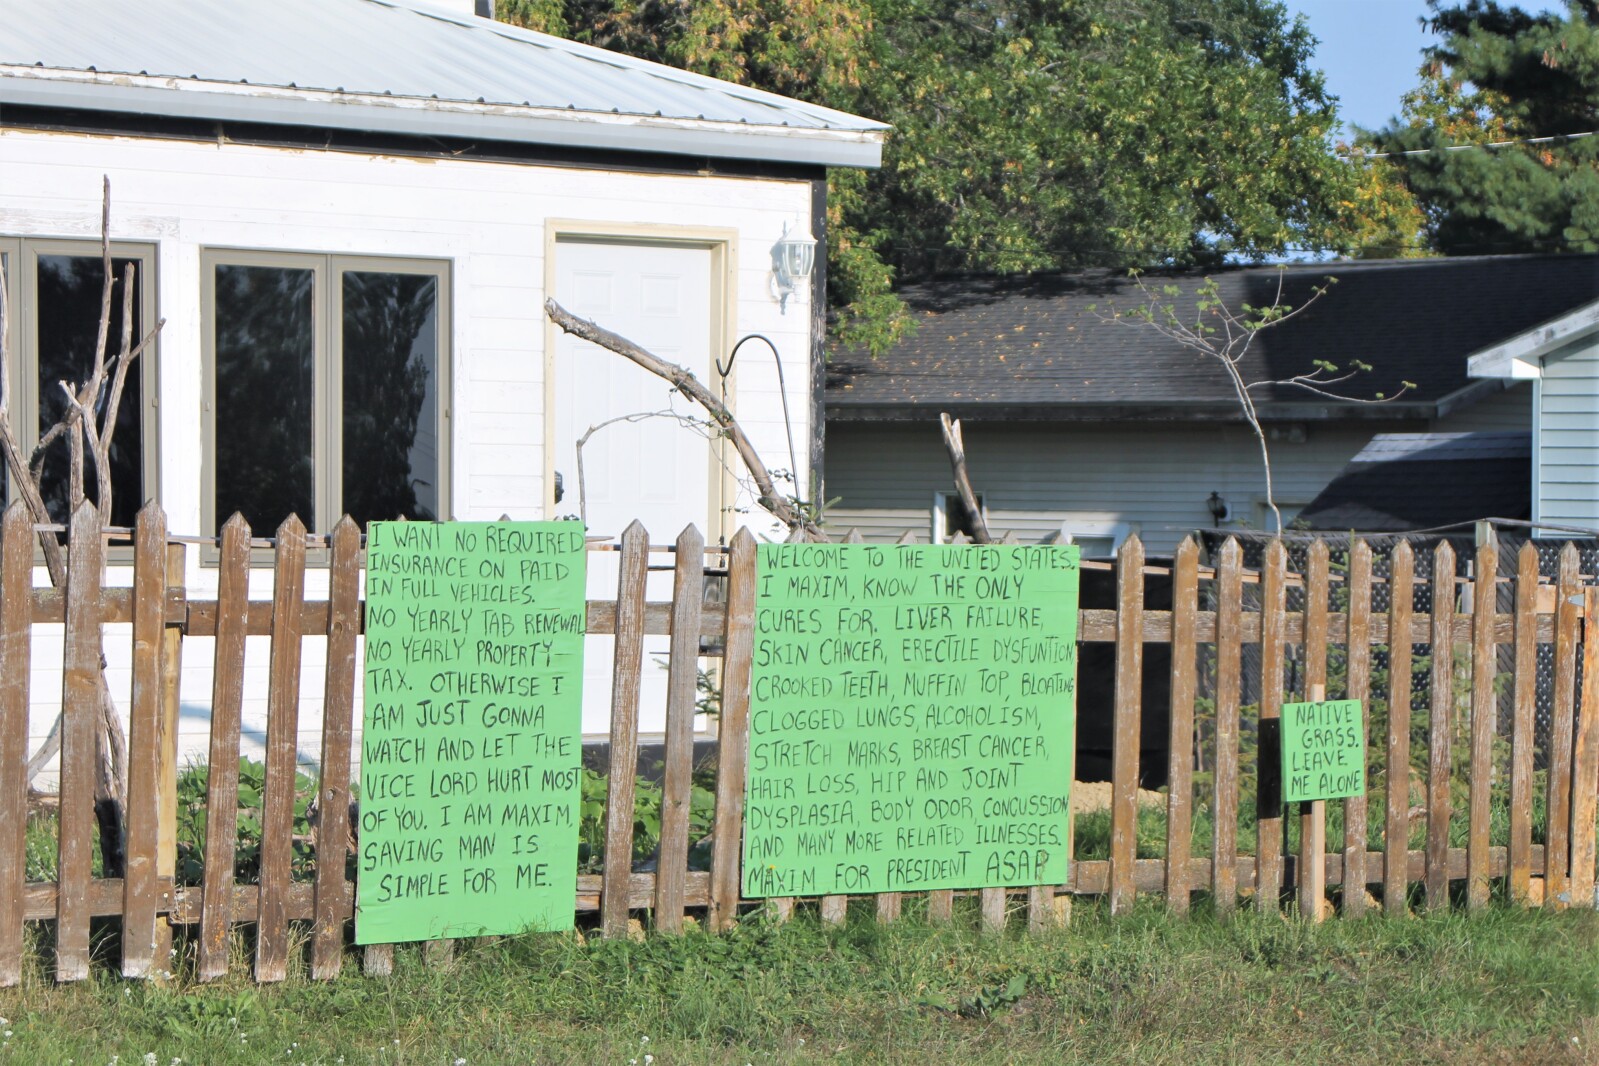 I WANT NO REQUIRED
INSURANCE ON PAID
IN FULL VEHICLES.
NO YEARLY TAB RENEWAL
NO YEARLY PROPERTY
TAX. OTHERWISE I
AM JUST GONNA
WATCH AND LET THE
VICE LORD HURT MOST
OF YOU. I AM MAXIM,
SAVING MAN IS
SIMPLE FOR ME.
WELCOME TO THE UNITED STATES.
I MAXIM, KNOW THE ONLY
CURES FOR. LIVER FAILURE,
SKIN CANCER, ERECTILE DYSFUNTION,
CROOKED TEETH, MUFFIN TOP, BLOATING
CLOGGED LUNGS, ALCOHOLISM,
STRETCH MARKS, BREAST CANCER,
HAIR LOSS, HIP AND JOINT
DYSPLASIA, BODY ODOR, CONCUSSION
AND MANY MORE RELATED ILLNESSES.
MAXIM FOR PRESIDENT ASAP
NATIVE
GRASS.
LEAVE
ME ALONE